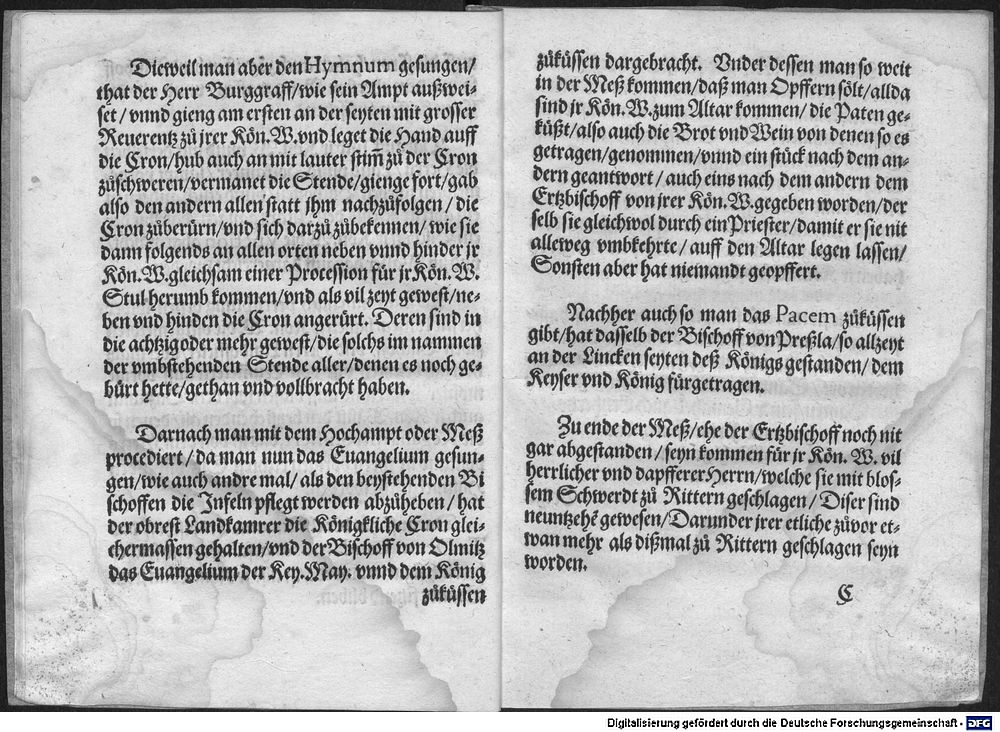 Dieweil man aber den Hymnum gesungen/
that der Herr Burggraff/wie sein Ampt außwei-
set/vnnd gieng am ersten an der seyten mit grosser
Reuerentz zů jrer Kön.W.vnd leget die Hand auff
die Cron/hub auch an mit lauter stim̃ zů der Cron
zůschweren/vermanet die Stende/gienge fort/gab
also den andern allen statt jhm nachzůfolgen/die
Cron zůberürn/vnd sich darzů zůbekennen/wie sie
dann folgends an allen orten neben vnnd hinder jr
Kön.W.gleichsam einer Procession für jr Kön.W.
Stul herumb kommen/vnd als vil zeyt gewest/ne-
ben vnd hinden die Cron angerürt. Deren sind in
die achtzig oder mehr gewest/die solchs im nammen
der vmbstehenden Stende aller/denen es noch ge-
bürt hette/gethan vnd vollbracht haben.
Darnach man mit dem Hochampt oder Meß
procediert/da man nun das Euangelium gesun-
gen/wie auch andre mal/als den beystehenden Bi
schoffen die Infeln pflegt werden abzůheben/hat
der obrest Landkamrer die Königkliche Cron glei-
chermassen gehalten/vnd der Bischoff von Olmitz
das Euangelium der Key.May. vnnd dem König
zůküssen
zůküssen dargebracht. Vnder dessen man so weit
in der Meß kommen/daß man Opffern sölt/allda
sind jr Kön.W.zum Altar kommen/die Paten ge-
küßt/also auch die Brot vnd Wein von denen so es
getragen/genommen/vnnd ein stück nach dem an-
dern geantwort/auch eins nach dem andern dem
Ertzbischoff von jrer Kön.W.gegeben worden/der
selb sie gleichwol durch ein Priester/damit er sie nit
alleweg vmbkehrte/auff den Altar legen lassen/
Sonsten aber hat niemandt geopffert.
Nachher auch so man das Pacem zůküssen
gibt/hat dasselb der Bischoff von Preßla/so allzeyt
an der Lincken seyten deß Königs gestanden/dem
Keyser vnd König fürgetragen.
Zu ende der Meß/ehe der Ertzbischoff noch nit
gar abgestanden/seyn kommen für jr Kön. W. vil
herrlicher vnd dapfferer Herrn/welche sie mit blos-
sem Schwerdt zů Rittern geschlagen/Diser sind
neuntzehẽ gewesen/Darunder jrer etliche zůvor et-
wan mehr als dißmal zů Rittern geschlagen seyn
worden.
C
Digitalisierung gefördert durch die Deutsche Forschungsgemeinschaft - DFG